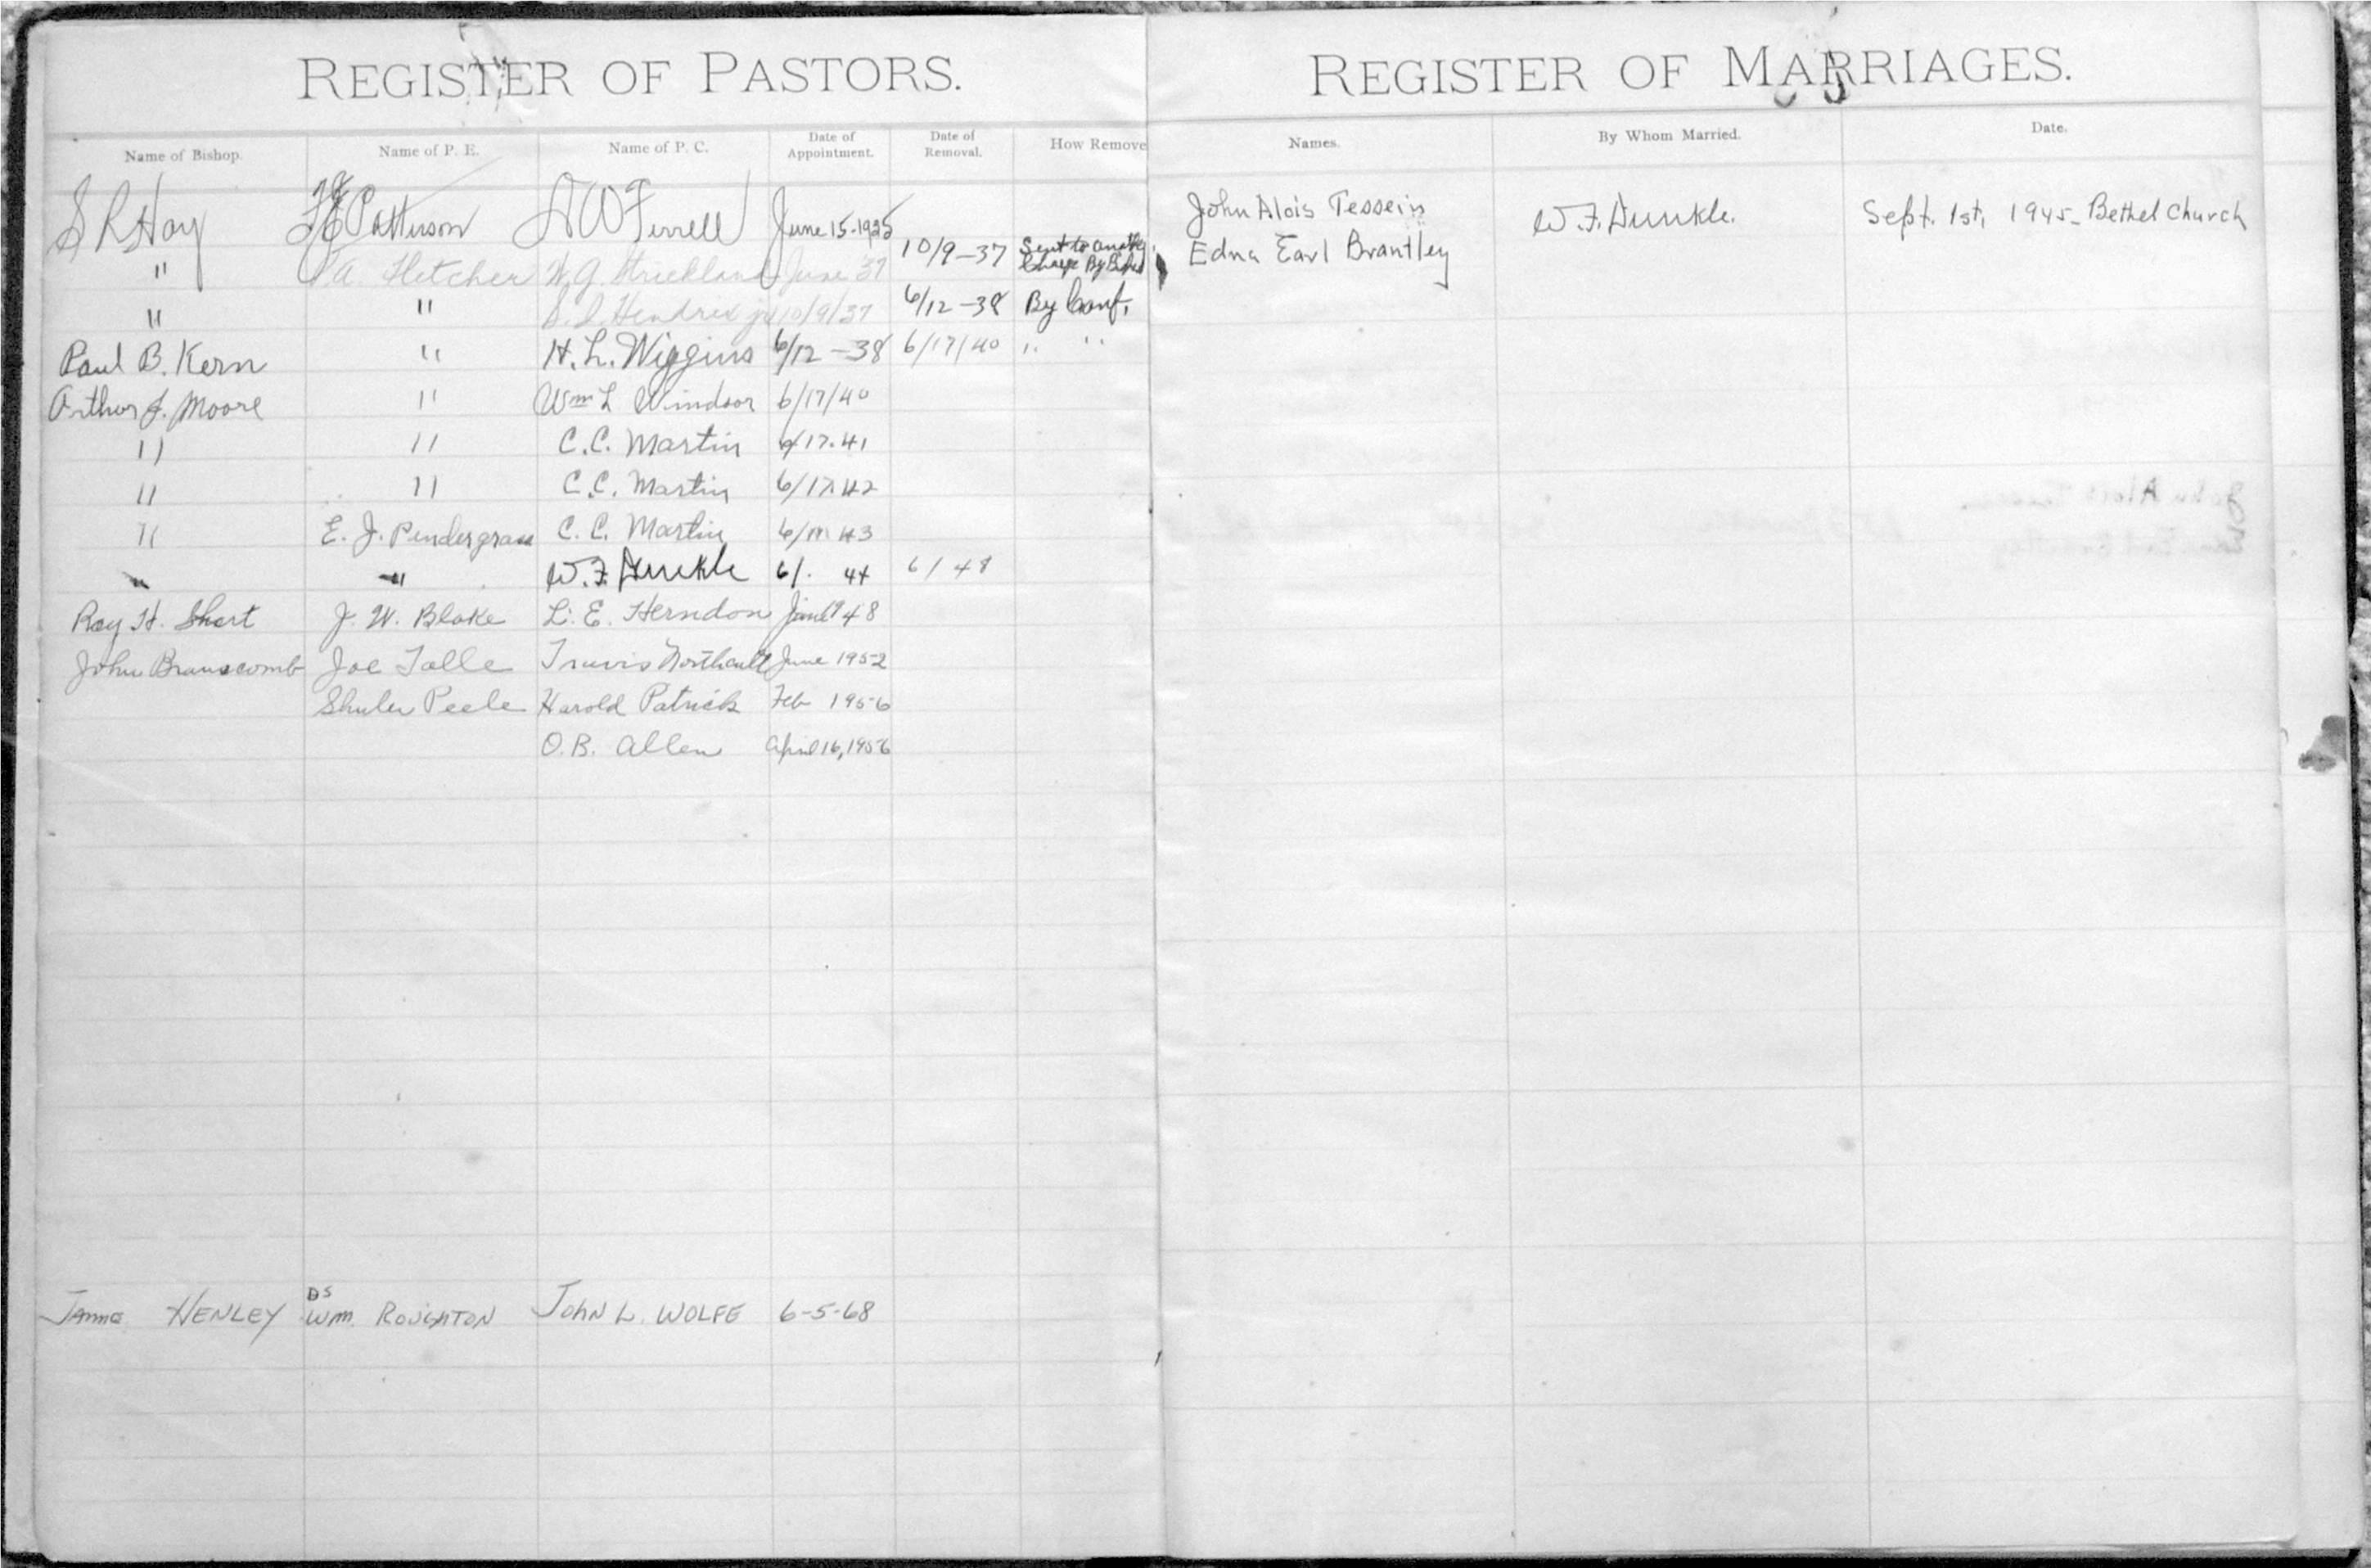 REGISTER OF PASTORS.
Name of Bishop. Name of P. E. Name of P. C. Date of Appointment. Date of Removal. How Remove
S R Hay Patterson Ferrell June 15-1935
" A. Fletcher W. G. Strickland June 37 10/9-37 Sent to another Charge By
" " Hendrix jr 10/9/37 6/12-38 By Conf.
Paul B. Kern " H. L. Wiggins 6/12-38 6/17/40 " "
Arthur J. Moore " Wm L Windsor 6/17/40
" " C.C. Martin 6/17.41
" " C.C. Martin 6/17.42
" E. J. Pendergrass C. C. Martin 6/ 43
" " W. F. Dunkle 6/. 44 6/48
Roy H. Short J. W. Blake L. E. Herndon 48
John Branscomb Joe Talle Travis June 1952
Shuler Peele Harold Patrick Feb 1956
O.B. Allen April 16, 1956
HENLEY DS Wm. ROUGHTON JOHN L. WOLFE 6-5-68
REGISTER OF MARRIAGES.
Names. By Whom Married. Date.
John Alois Tessein W. F. Dunkle. Sept. 1st, 1945- Bethel Church
Edna Earl Brantley